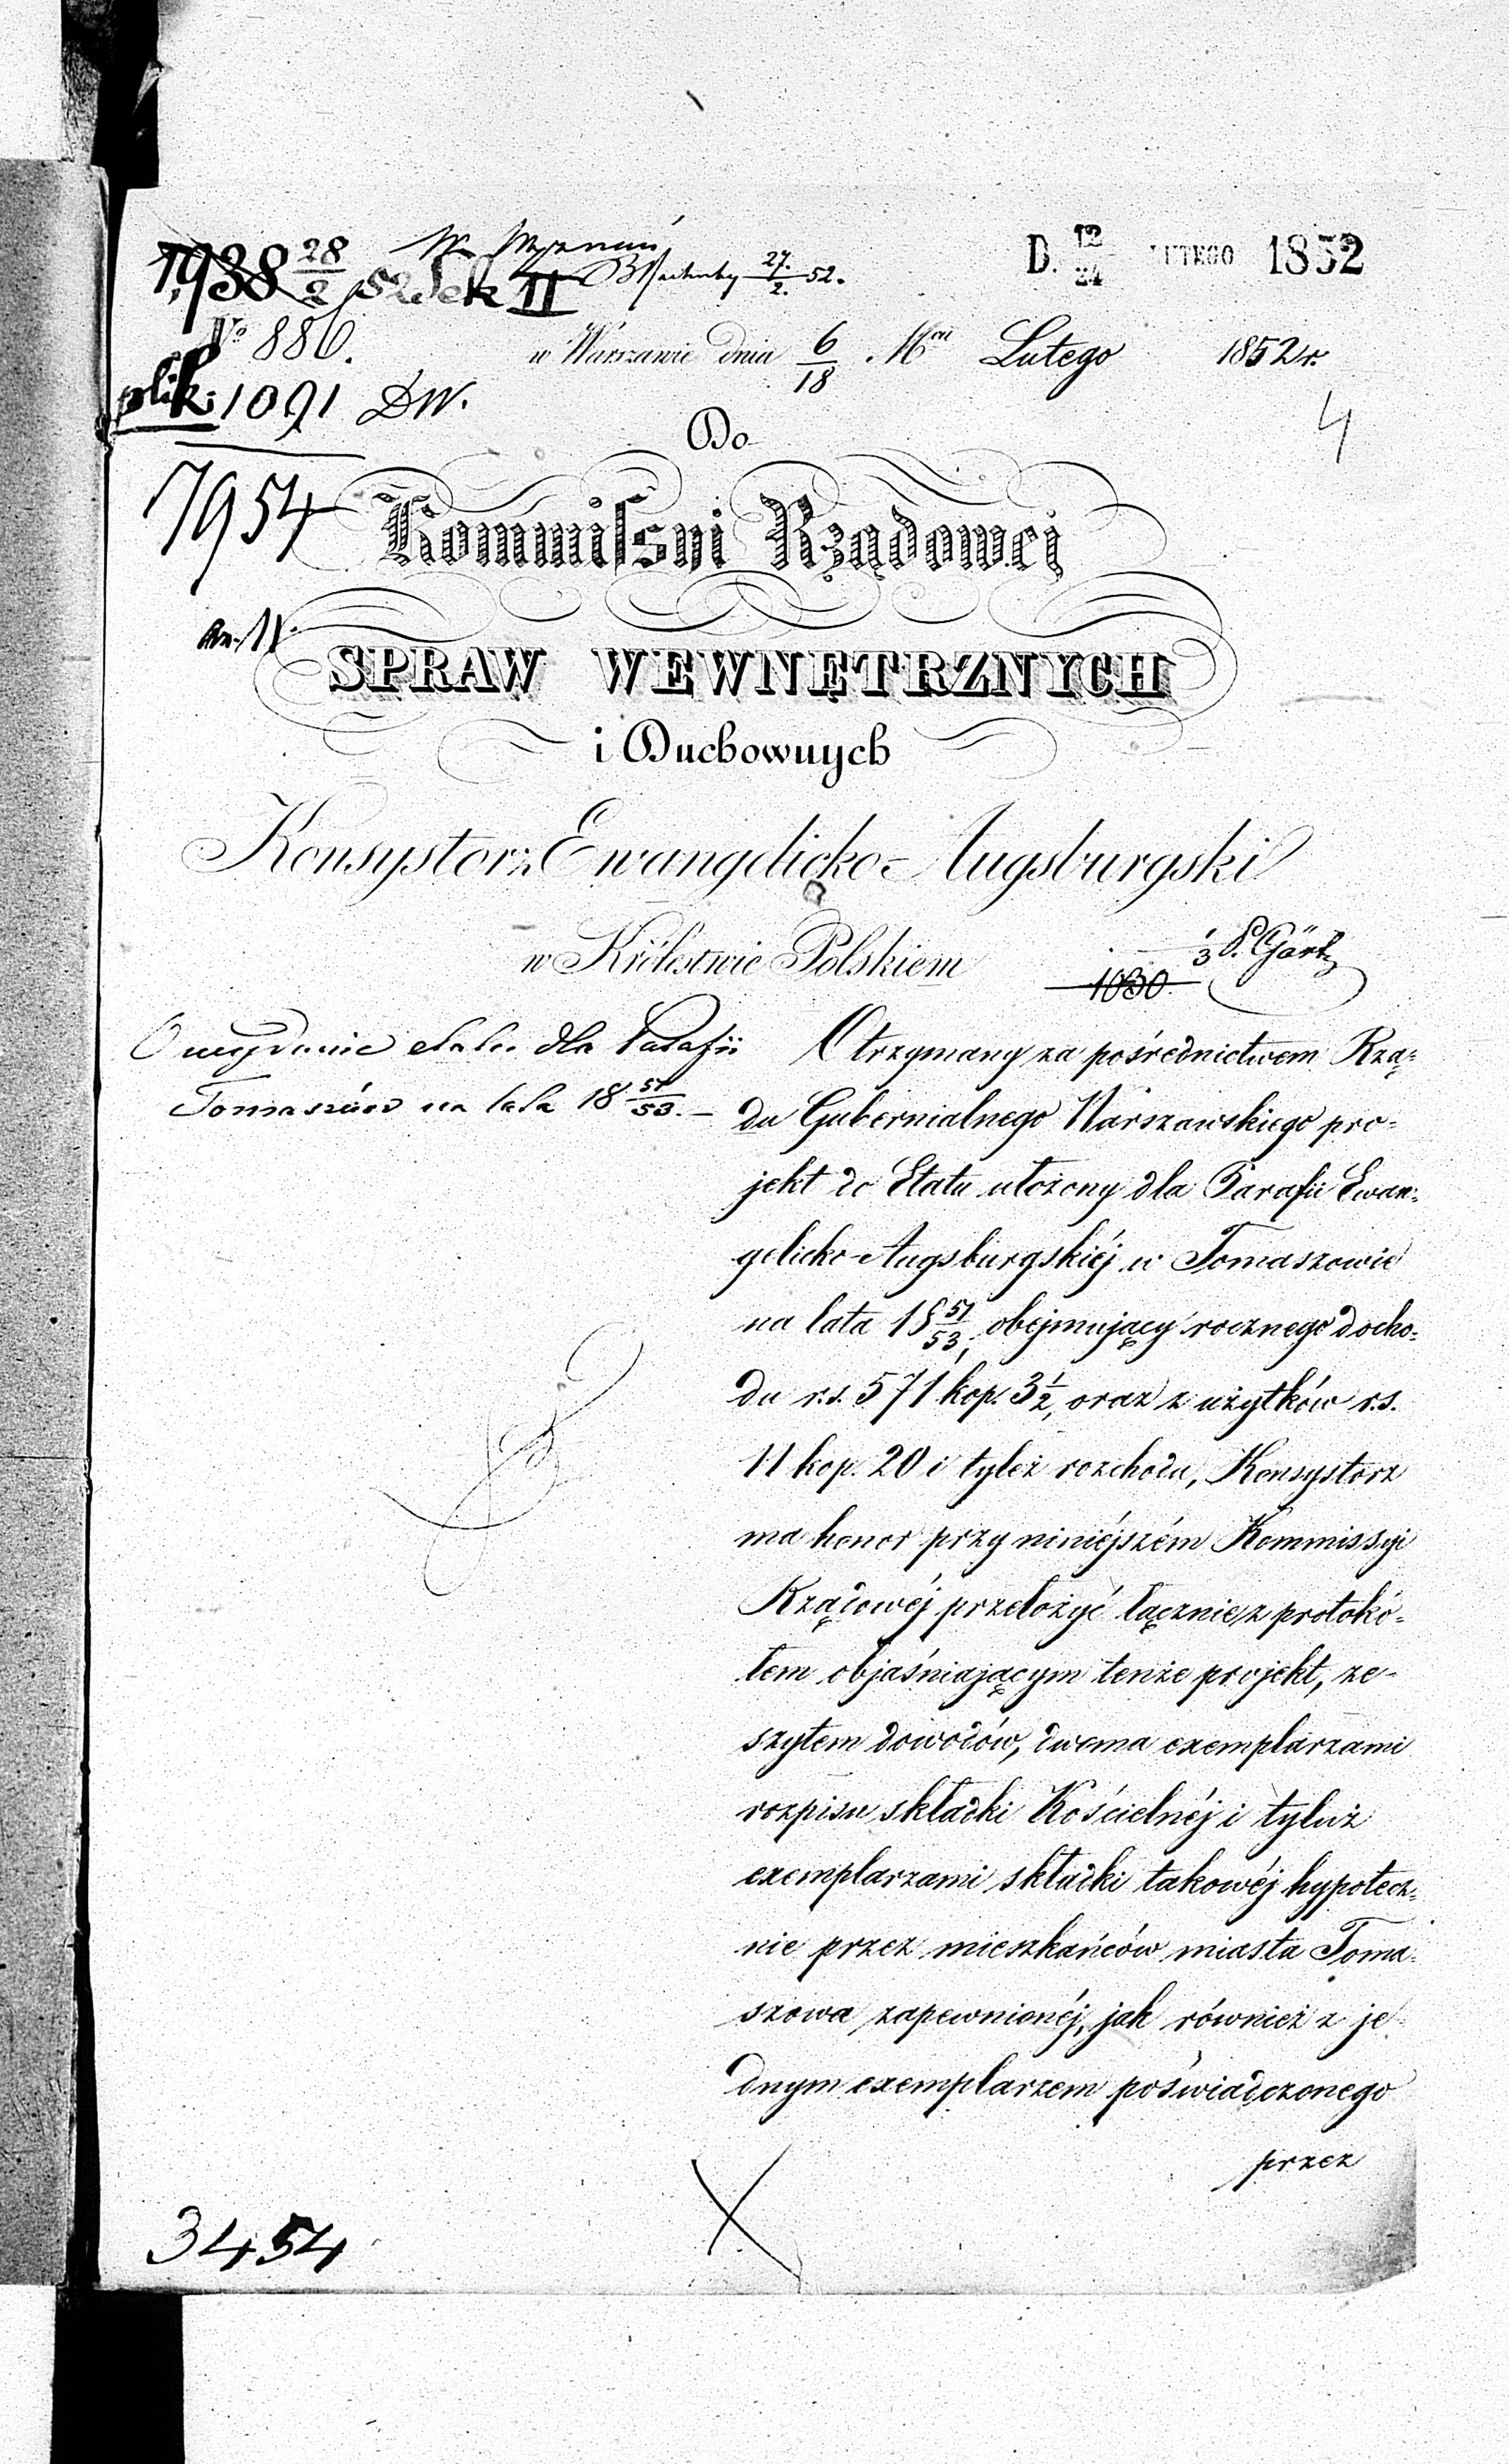 7938 28/2 52 Sek II
W. Wyznań
27/2 52.
D. 12/24 LUTEGO 1852
No 886.
w Warszawie dnia 6/18 Mca Lutego 1852 r.
plik: 1091 DW.
4
Do
7954
Kommissyi Rządowej
SPRAW WEWNĘTRZNYCH
i Duchownych
Konsystorz Ewangelicko-Augsburgski
w Królestwie Polskiem
1030
O wydanie etatu dla Parafii
Tomaszów na lata 18 51/53. –
Otrzymany za pośrednictwem Rzą-
du Gubernialnego Warszawskiego pro-
jekt do Etatu ułożony dla Parafii Ewan-
gelicko-Augsburgskiéj w Tomaszowie
na lata 18 51/53, obejmujący rocznego docho-
du r.s. 571 kop. 3 1/2, oraz z użytków r.s.
11 kop. 20 i tyleż rozchodu, Konsystorz
ma honor przy niniéjszém Kommissyi
Rządowéj przełożyć łącznie z protokó-
łem objaśniającym tenże projekt, ze-
szytem dowodów, dwoma exemplarzami
rozpisu składki Kościelnéj i tyluż
exemplarzami składki takowéj hypotecz-
nie przez mieszkańców miasta Toma-
szowa zapewnionéj, jak również z je-
dnym exemplarzem poświadczonego
przez
3454